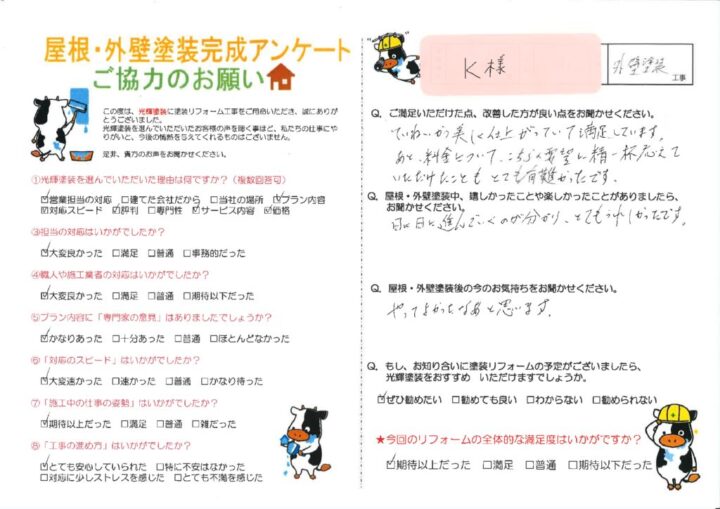 屋根・外壁塗装完成アンケート
ご協力のお願い
この度は、光輝塗装に塗装リフォーム工事をご用命いただき、誠にありが
とうございました。
光輝塗装を選んでいただいたお客様の声を聞く事ほど、私たちの仕事にや
りがいと、今後の情熱を与えてくれるものはございません。
是非、貴方のお声をお聞かせください。
①光輝塗装を選んでいただいた理由は何ですか?(複数回答可)
☑営業担当の対応 □建てた会社だから □当社の場所 ☑プラン内容
☑対応スピード ☑評判 □専門性 ☑サービス内容 ☑価格
③担当の対応はいかがでしたか?
☑大変良かった □満足 □普通 □事務的だった
④職人や施工業者の対応はいかがでしたか?
☑大変良かった □満足 □普通 □期待以下だった
⑤プラン内容に「専門家の意見」はありましたでしょうか?
☑かなりあった □十分あった □普通 □ほとんどなかった
⑥「対応のスピード」はいかがでしたか?
☑大変速かった □速かった □普通 □かなり待った
⑦「施工中の仕事の姿勢」はいかがでしたか?
☑期待以上だった □満足 □普通 □雑だった
⑧「工事の進め方」はいかがでしたか?
☑とても安心していられた □特に不安はなかった
□対応に少しストレスを感じた □とても不満を感じた
K様
外壁塗装
工事
Q. ご満足いただけた点、改善した方が良い点をお聞かせください。
ていねいかつ美しく仕上がっていて満足しています。
あと、料金について、こちらの要望に精一杯応えて
いただけたことも とても有難かったです。
Q. 屋根・外壁塗装中、嬉しかったことや楽しかったことがありましたら、
お聞かせください。
日に日に進んでいくのが分かり、とてもうれしかったです。
Q. 屋根・外壁塗装後の今のお気持ちをお聞かせください。
やってよかったなあと思います。
Q. もし、お知り合いに塗装リフォームの予定がございましたら、
光輝塗装をおすすめ いただけますでしょうか。
☑ぜひ勧めたい □勧めても良い □わからない □勧められない
★今回のリフォームの全体的な満足度はいかがですか?
☑期待以上だった □満足 □普通 □期待以下だった